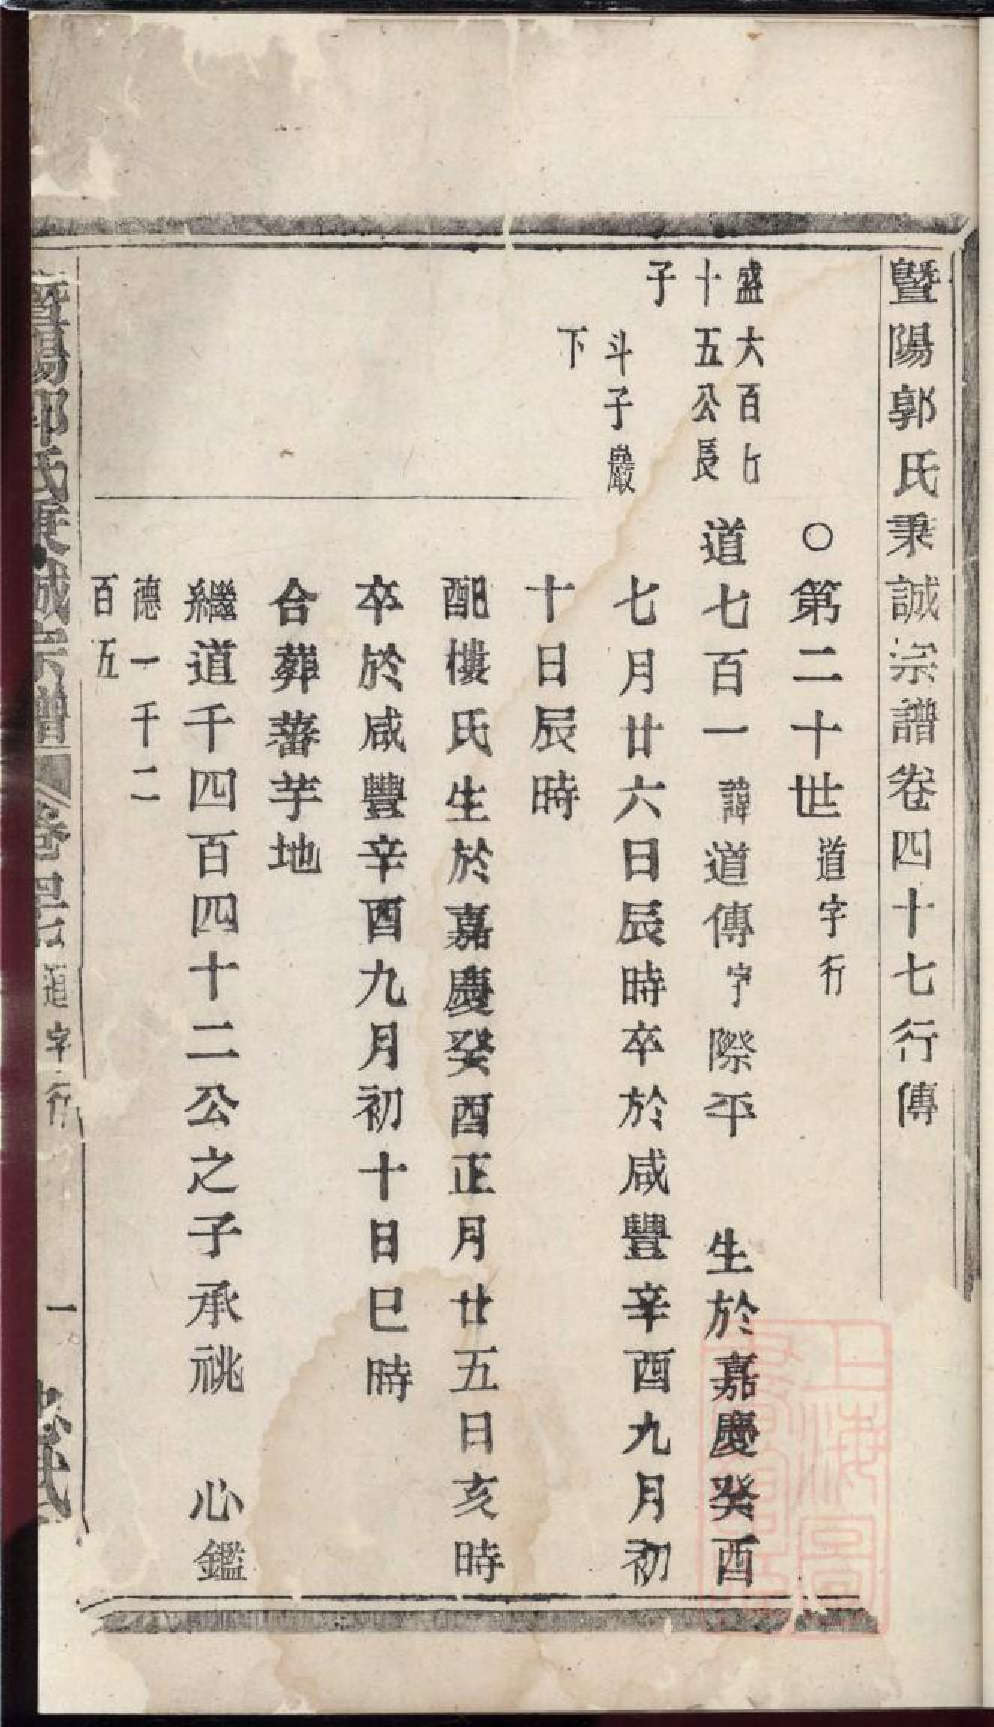 暨陽郭氏秉誠宗譜卷四十七行傳
○第二十世道字行
盛大百七
十五公長
子
道七百一諱道傳字際平 生於嘉慶癸酉
斗子巖
下
七月廿六日辰時卒於咸豐辛酉九月初
十日辰時
配樓氏生於嘉慶癸酉正月廿五日亥時
卒於咸豐辛酉九月初十日巳時
合葬蕃芋地
繼道千四百四十二公之子承祧 心鑑
德一千二
百五
暨陽郭氏秉誠宗譜 卷四七 道字行 一
上海圖